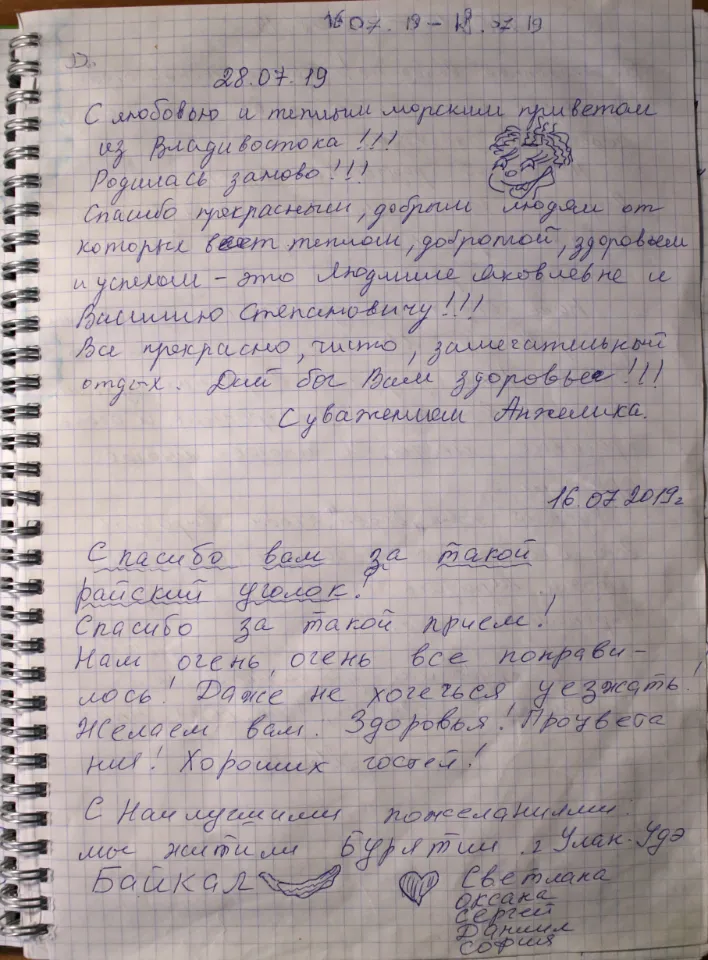 16 07. 19 - 18. 07 19
28.07.19
С любовью и теплым морским приветом
из Владивостока!!!
Родилась заново!!!
Спасибо прекрасным, добрым людям от
которых веет теплом, добротой, здоровьем
и успехом - это Людмиле Яковлевне и
Василию Степановичу!!!
Все прекрасно, чисто, замечательный
отдых. Дай бог Вам здоровье!!!
С уважением Анжелика.
16.07.2019г
Спасибо вам за такой
райский уголок!
Спасибо за такой прием!
Нам очень, очень все понрави-
лось! Даже не хочеться уезжать!
Желаем вам: Здоровья! Процвета
ния! Хороших гостей!
С Наилучшими пожеланиями:
мы житили Бурятии г Улан-Удэ
Байкал
Светлана
оксана
сергей
Даниил
София